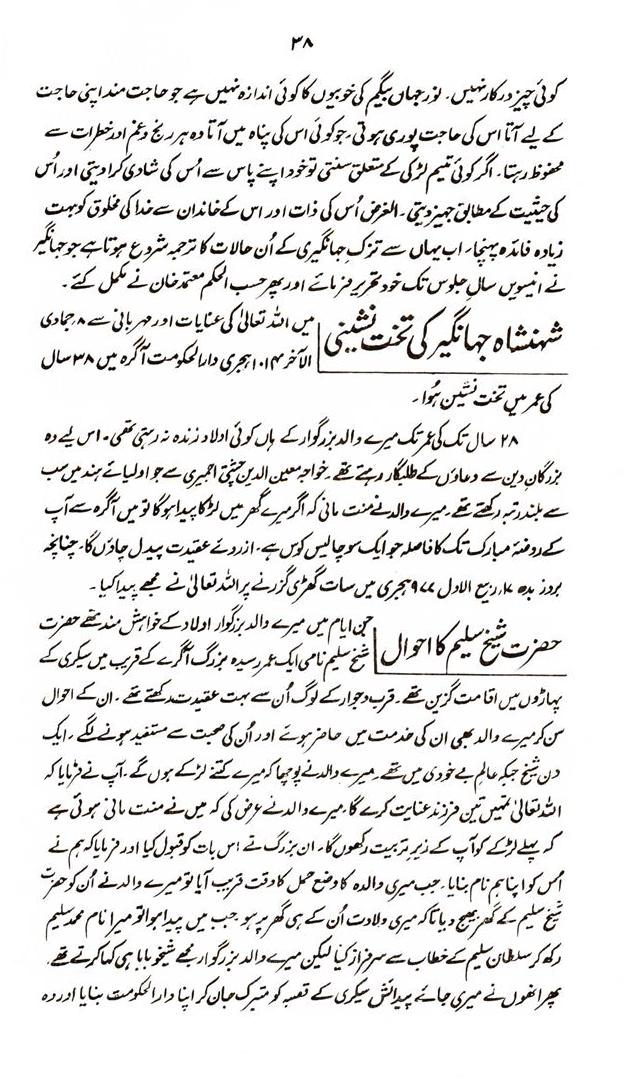 ۳۸
کوئی چیز درکار نہیں۔ نور جہاں بیگم کی خوبیوں کا کوئی اندازہ نہیں ہے جو حاجت مند اپنی حاجت
کے لیے آتا اس کی حاجت پوری ہوتی، جو کوئی اس کی پناہ میں آتا وہ ہر رنج و غم اور خطرات سے
محفوظ رہتا۔ اگر کوئی یتیم لڑکی کے متعلق سنتی تو خود اپنے پاس سے اُس کی شادی کرا دیتی اور اُس
کی حیثیت کے مطابق جہیز دیتی۔ الغرض اُس کی ذات اور اس کے خاندان سے خدا کی مخلوق کو بہت
زیادہ فائدہ پہنچا۔ اب یہاں سے تزک جہانگیری کے اُن حالات کا ترجمہ شروع ہوتا ہے جو جہانگیر
نے انیسویں سال جلوس تک خود تحریر فرمائے اور پھر حسب الحکم معتمد خان نے مکمل کئے۔
شہنشاہ جہانگیر کی تخت نشینی
میں اللہ تعالیٰ کی عنایات اور مہربانی سے ۸ جمادی
الآخر ۱۰۱۴ ہجری دارالحکومت آگرہ میں ۳۸ سال
کی عمر میں تخت نشین ہُوا۔
۲۸ سال تک کی عمر تک میرے والد بزرگوار کے ہاں کوئی اولاد زندہ نہ رہتی تھی۔ اس لیے وہ
بزرگان دین سے دعاؤں کے طلبگار رہتے تھے۔ خواجہ معین الدین چشتی اجمیری سے جو اولیائے ہند میں سب
سے بلند رتبہ رکھتے تھے۔ میرے والد نے منت مانی کہ اگر میرے گھر میں لڑکا پیدا ہوگا تو میں آگرہ سے آپ
کے روضۂ مبارک تک کا فاصلہ جو ایک سو چالیس کوس ہے۔ ازروئے عقیدت پیدل جاؤں گا۔ چنانچہ
بروز بدھ ۱۷ ربیع الاول ۹۷۷ ہجری میں سات گھڑی گزرنے پر اللہ تعالیٰ نے مجھے پیدا کیا۔
حضرت شیخ سلیم کا احوال
جن ایام میں میرے والد بزرگوار اولاد کے خواہش مند تھے حضرت
شیخ سلیم نامی ایک عمر رسیدہ بزرگ آگرے کے قریب میں سیکری کے
پہاڑوں میں اقامت گزین تھے۔ قرب و جوار کے لوگ اُن سے بہت عقیدت رکھتے تھے۔ ان کے احوال
سن کر میرے والد بھی ان کی خدمت میں حاضر ہوئے اور اُن کی صحبت سے مستفید ہونے لگے۔ ایک
دن شیخ جبکہ عالم بے خودی میں تھے۔ میرے والد نے پوچھا کہ میرے کتنے لڑکے ہوں گے۔ آپ نے فرمایا کہ
اللہ تعالیٰ تمہیں تین فرزند عنایت کرے گا، میرے والد نے عرض کی کہ میں نے منت مانی ہوئی ہے
کہ پہلے لڑکے کو آپ کے زیر تربیت رکھوں گا۔ ان بزرگ نے اس بات کو قبول کیا اور فرمایا کہ ہم نے
اُس کو اپنا ہم نام بنایا۔ جب میری والدہ کا وضع حمل کا وقت قریب آیا تو میرے والد نے اُن کو حضرت
شیخ سلیم کے گھر بھیج دیا تاکہ میری ولادت اُن کے ہی گھر پر ہو۔ جب میں پیدا ہوا تو میرا نام محمد سلیم
رکھ کر سلطان سلیم کے خطاب سے سرفراز کیا لیکن میرے والد بزرگوار مجھے شیخو بابا ہی کہا کرتے تھے۔
پھر انھوں نے میری جائے پیدائش سیکری کے قصبہ کو متبرک جان کر اپنا دارالحکومت بنایا اور وہ